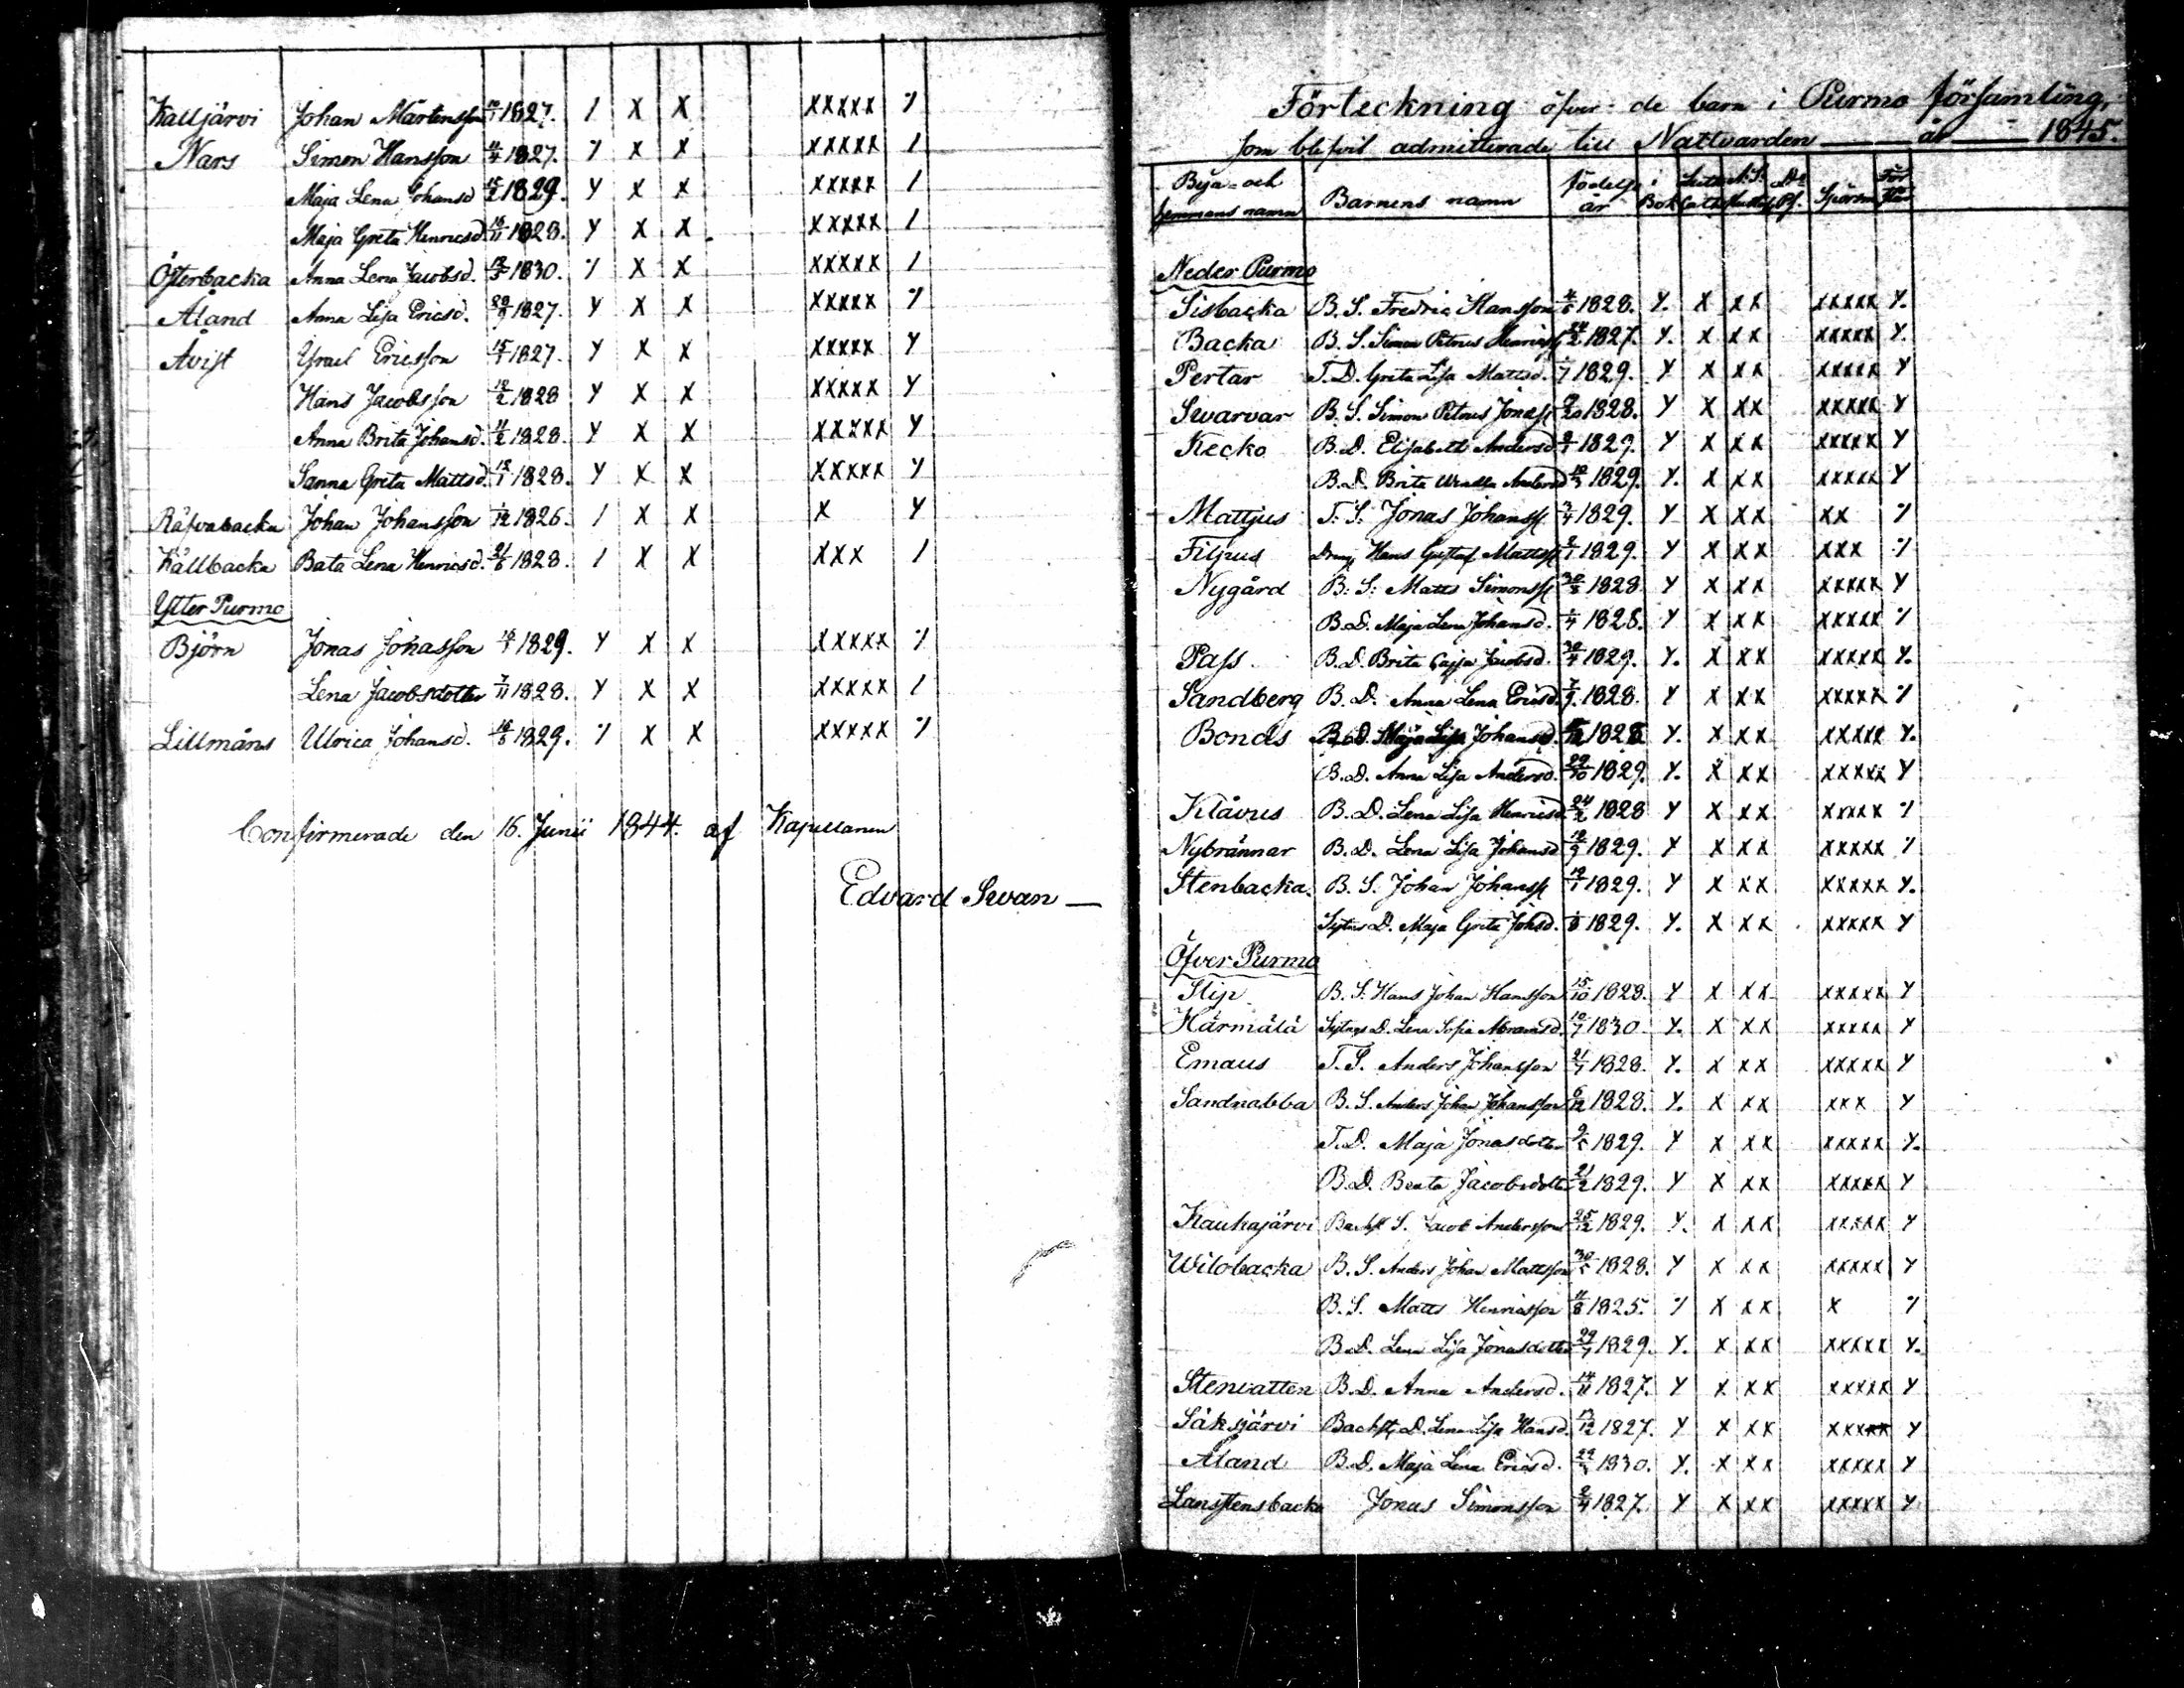 Kalljärvi Johan Mårtensson 1827. / X X XXXXX ٪
Nars Simon Hansson 11/4 1827. ٪ X X XXXXX /
Maja Lena Johansd 1829. Y X X XXXXX /
Maja Greta Henricsd. 1828. Y X X XXXXX /
Österbacka Anna Lena Jacobsd. 1830. ٪ X X XXXXX /
Åland Anna Lisa Ericsd. 29/9 1827. Y X X XXXXX ٪
Åvist Ysrael Ericsson 1827. Y X X XXXXX Y
Hans Jacobsson 12/2 1828 Y X X XXXXX Y
Anna Brita Johansd. 11/2 1828. Y X X XXXXX Y
Sanna Greta Mattsd. 1828. Y X X XXXXX Y
Räfvabacka Johan Johansson 1/12 1826. / X X X Y
Källbacka Bata Lena Henricsd. 21/6 1828. / X X XXX /
Ytter Purmo
Björn Jonas Johansson 1829. Y X X XXXXX ٪
Lena Jacobsdotter 7/11 1828. Y X X XXXXX /
Lillmåns Ulrica Johansd. 1829. ٪ X X XXXXX ٪
Confirmerade den 16. Junii 1844. af Kapellanen
Edvard Svan —
Förteckning öfver de barn i Purmo församling,
som blifvit admitterade till Nattvarden — år — 1845.
Bya- och Barnens namn födelse i
hemmans namn år Bok Spörsm
Neder Purmo
Sisbacka B. S. Fredric Hansson 1828. Y. X XX XXXXX Y.
Backa B. S. Simon Petrus Henricss 24/2 1827. Y. X XX XXXXX Y.
Pertar T. D. Greta Lisa Mattsd. 1/7 1829. Y X XX XXXXX Y
Swarvar B. S. Simon Petrus Jonass 1828. Y X XX XXXXX Y
Kecko B. D. Elisabeth Andersd 1829. Y X XX XXXXX Y
B. D. Brita Andersd 1829. Y. X XX XXXXX Y
Mattjus T. S. Jonas Johanss 1829. Y X XX XX ٪
Filpus Dreng Hans Gustaf Mattss 1829. Y X XX XXX ٪
Nygård B. S. Matts Simonss 1828 Y X XX XXXXX Y
B. D. Maja Lena Johansd. 1828. Y X XX XXXXX ٪
Pass B. D. Brita Cajsa Jacobsd. 1829. Y. X XX XXXXX Y.
Sandberg B. D. Anna Lena Ericsd. 7/9 1828. Y X XX XXXXX ٪
Bonds B. D. Maja Lisa Johansd. 1828 Y. X XX XXXXX Y.
B. D. Anna Lisa Andersd. 29/10 1829. Y. X XX XXXXX Y
Klåvus B. D. Lena Lisa Henricsd. 24/2 1828 Y X XX XXXXX ٪
Nybrännar B. D. Lena Lisa Johansd 1829. Y X XX XXXXX ٪
Stenbacka. B. S. Johan Johanss 1829. Y X XX XXXXX Y.
Sytn. D. Maja Greta Johsd. 1829. Y. X XX XXXXX Y
Öfver Purmo
Slip B. S. Hans Johan Hansson 15/10 1828. Y X XX XXXXX Y
Härmälä Sytngs D. Lena Sofia Abramsd. 1830. Y. X XX XXXXX Y
Emaus T. S. Anders Johansson 1828. Y. X XX XXXXX Y
Sandnabba B. S. Anders Johan Johansson 6/12 1828. Y. X XX XXX Y
T. D. Maja Jonasdotter 1829. Y X XX XXXXX Y.
B. D. Beata Jacobsdotter 21/2 1829. Y X XX XXXXX Y
Kauhajärvi Backst S. Jacob Andersson 25/12 1829. Y. X XX XXXXX Y
Wilobacka B. S. Anders Johan Mattsson 1828. Y X XX XXXXX Y
B. S. Matts Henricsson 11/8 1825. ٪ X XX X ٪
B. D. Lena Lisa Jonasdotter 1829. Y. X XX XXXXX Y.
Stenvatten B. D. Anna Andersd. 14/11 1827. Y X XX XXXXX Y
Säksjärvi Backst. D. Lena Lisa Hansd. 1827. Y X XX XXXXX Y
Åland B. D. Maja Lena Ericsd. 1830. Y. X XX XXXXX Y
Lanstensbacka Jonas Simonsson 1827. Y X XX XXXXX Y